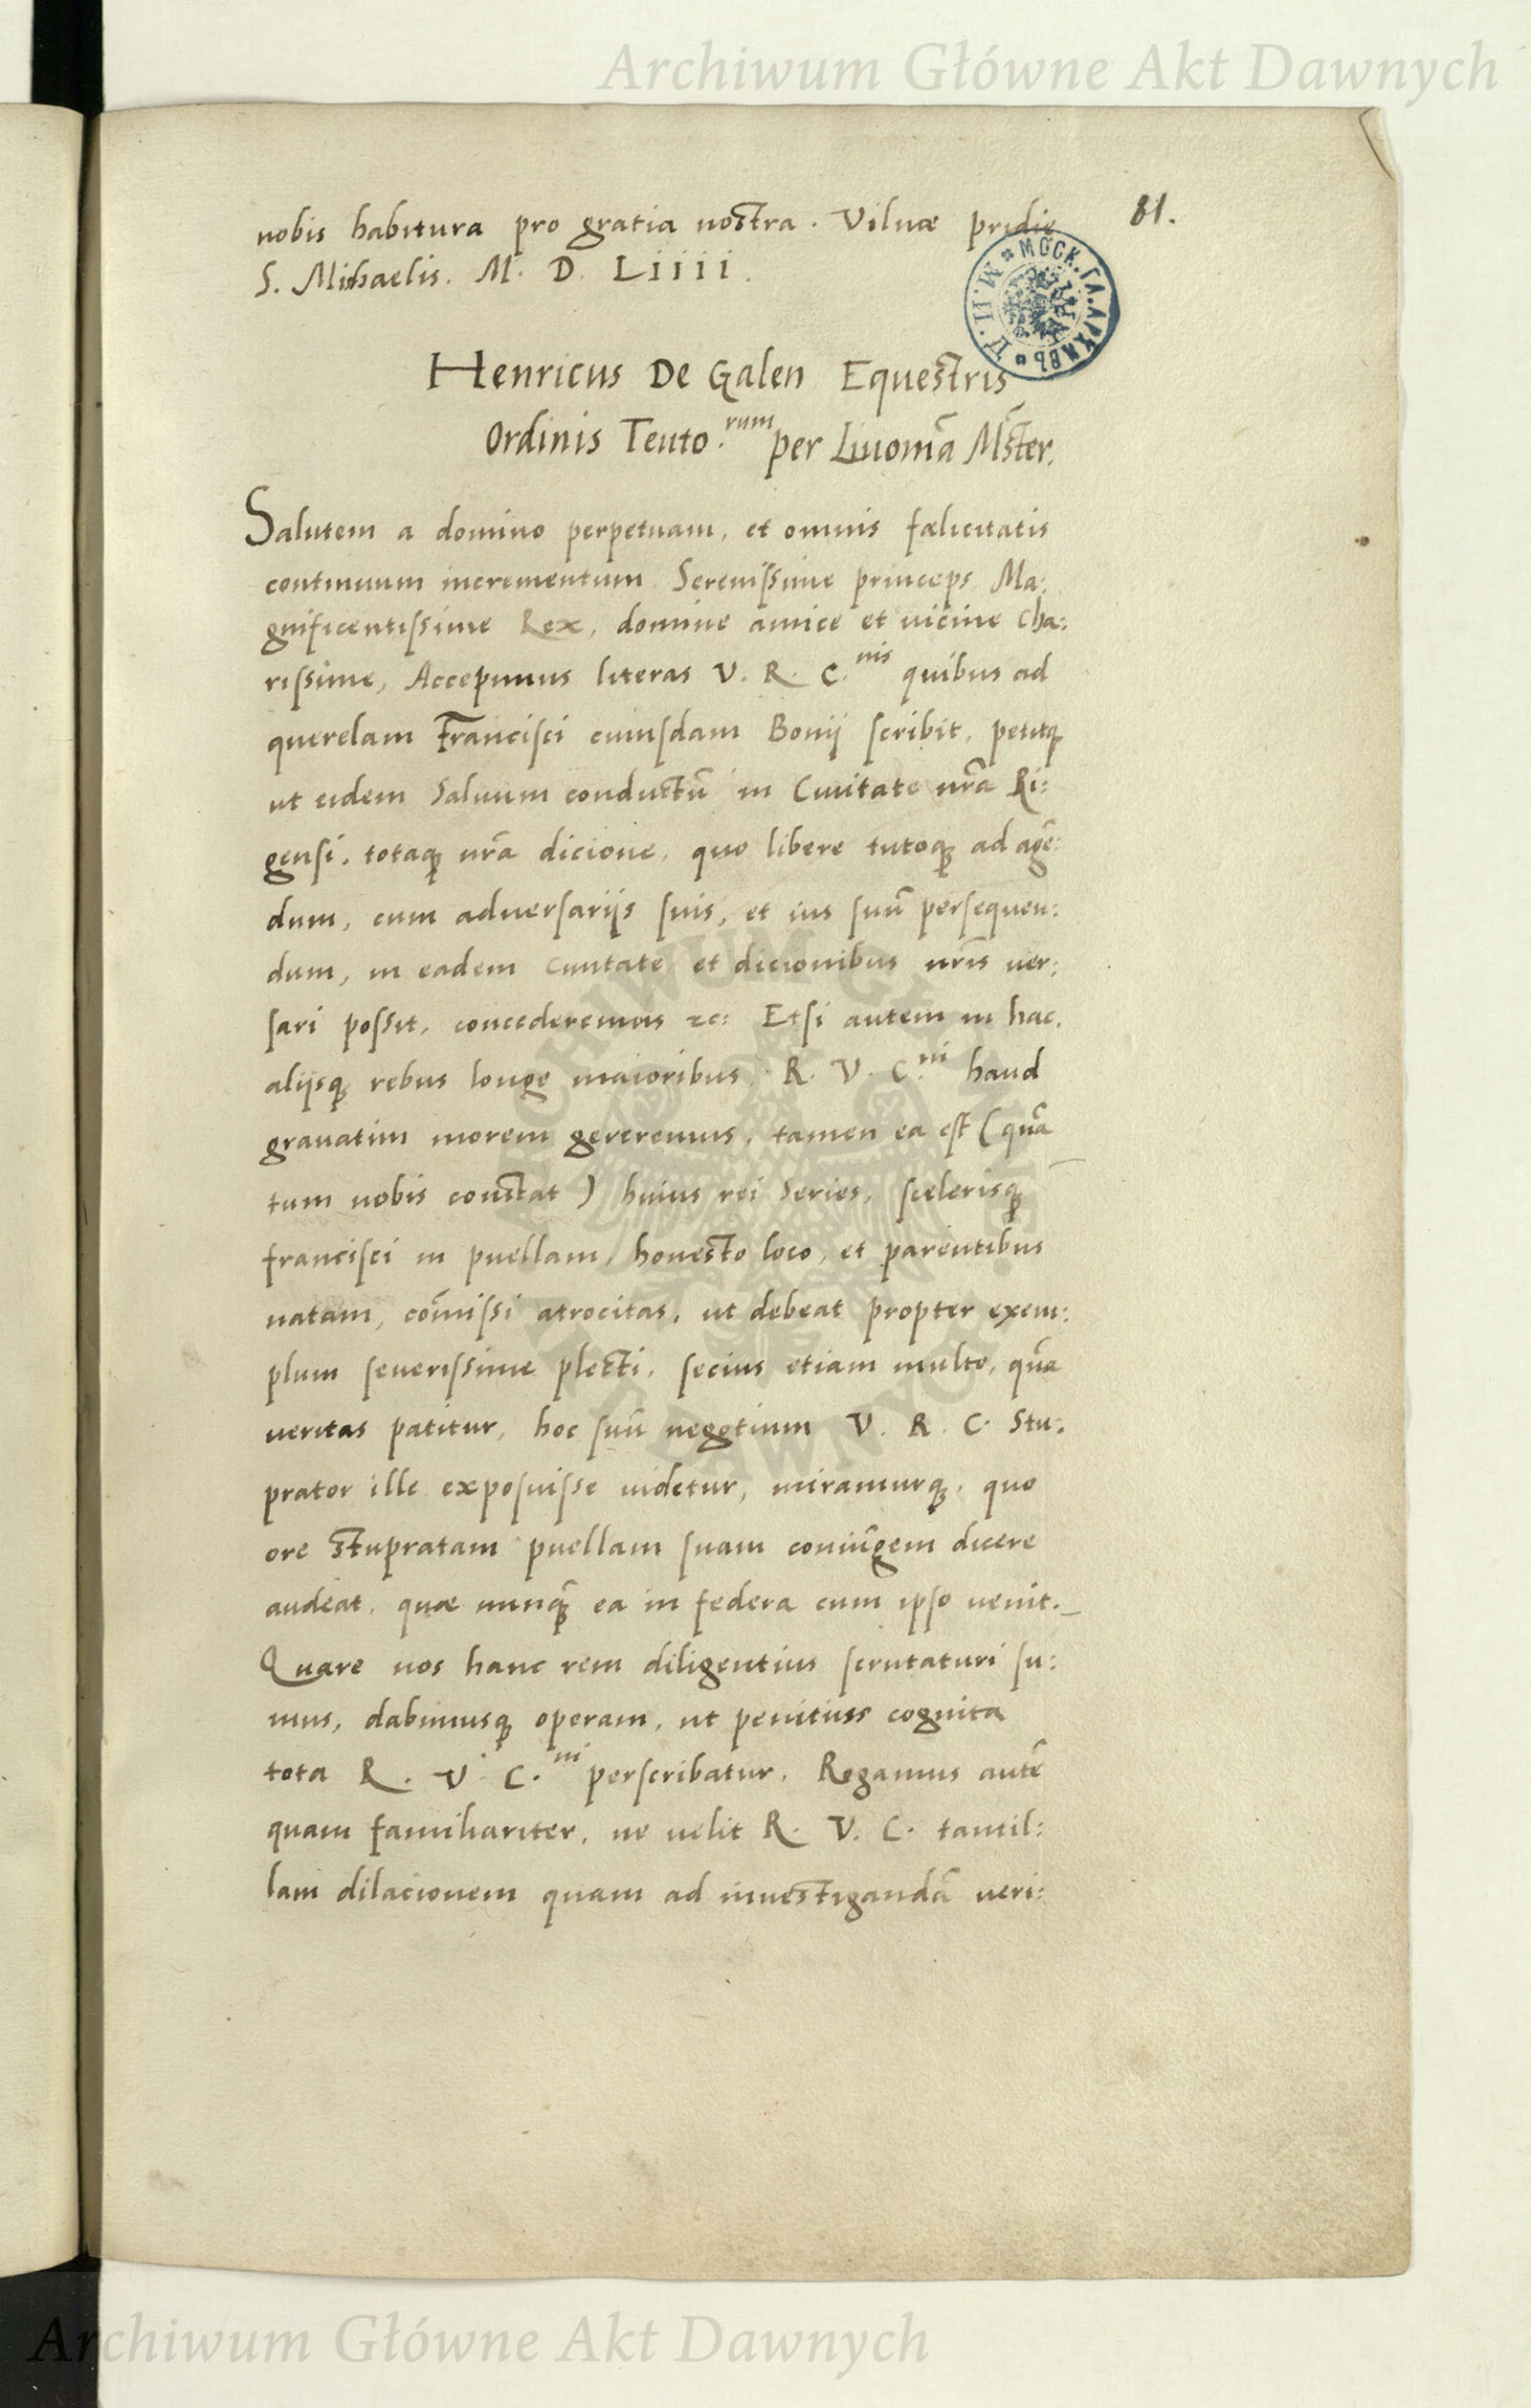 Archiwum Główne Akt Dawnych
81.
nobis habitura pro gratia nostra. Vilnæ pridie
S. Michaelis. M. D. Liiii.
МОСК. ГЛ. АРХИВЪ М. И. Д.
Henricus De Galen Equestris
Ordinis Teuto.rum per Liuoniā Mr̄ster.
Salutem a domino perpetuam, et omnis fælicitatis
continuum incrementum. Serenissime princeps, Ma:
gnificentissime Rex, domine amice et vicine cha:
rissime, Accepimus literas V. R. C.nis quibus ad
querelam Francisci cuiusdam Bonij scribit, petitq;
ut eidem Saluum conductū in Ciuitate nr̄a Ri:
gensi, totaq; nr̄a dicione, quo libere tutoq; ad agē:
dum, cum aduersarijs suis, et ius suū persequen:
dum, in eadem ciuitate et dicionibus nr̄is uer:
sari possit, concederemus &c: Etsi autem in hac,
alijsq; rebus longe maioribus R. V. C.ni haud
grauatim morem gereremus, tamen ea est (quā
tum nobis constat) huius rei Series, scelerisq;
francisci in puellam, honesto loco, et parentibus
natam, cōmissi atrocitas, ut debeat propter exem:
plum seuerissime plecti, secius etiam multo, quā
ueritas patitur, hoc suū negotium V. R. C. Stu:
prator ille exposuisse uidetur, miramurq;, quo
ore stupratam puellam suam coniugem dicere
audeat, quæ nunq̄; ea in federa cum ipso uenit.
Quare nos hanc rem diligentius scrutaturi su:
mus, dabimusq; operam, ut penitius cognita
tota R. V. C.ni perscribatur. Rogamus autē
quam familiariter, ne uelit R. V. C. tantil:
lam dilacionem quam ad inuestigandā ueri:
Archiwum Główne Akt Dawnych